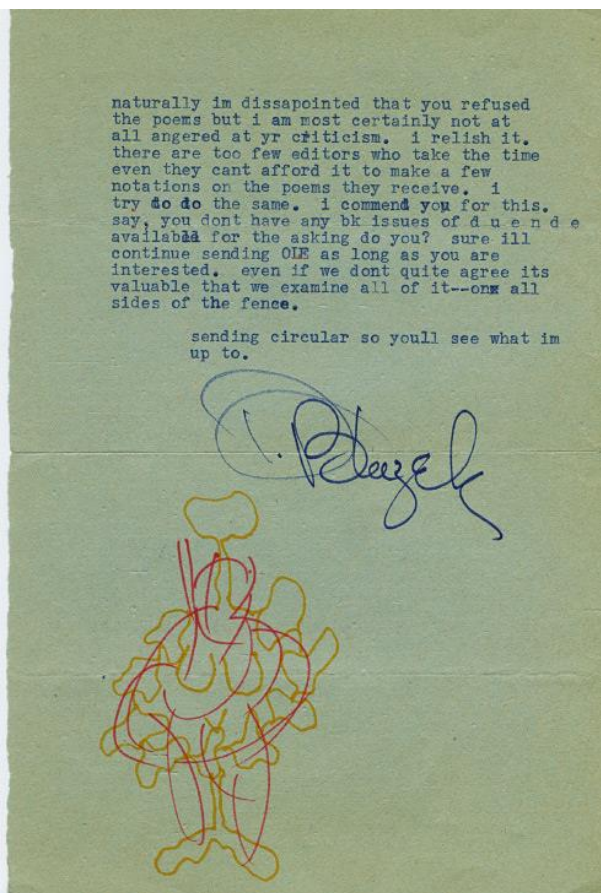 naturally im dissapointed that you refused
the poems but i am most certainly not at
all angered at yr criticism. i relish it.
there are too few editors who take the time
even they cant afford it to make a few
notations on the poems they receive. i
try do do the same. i commend you for this.
say, you dont have any bk issues of d u e n d e
available for the asking do you? sure ill
continue sending OLE as long as you are
interested. even if we dont quite agree its
valuable that we examine all of it--onx all
sides of the fence.
sending circular so youll see what im
up to.